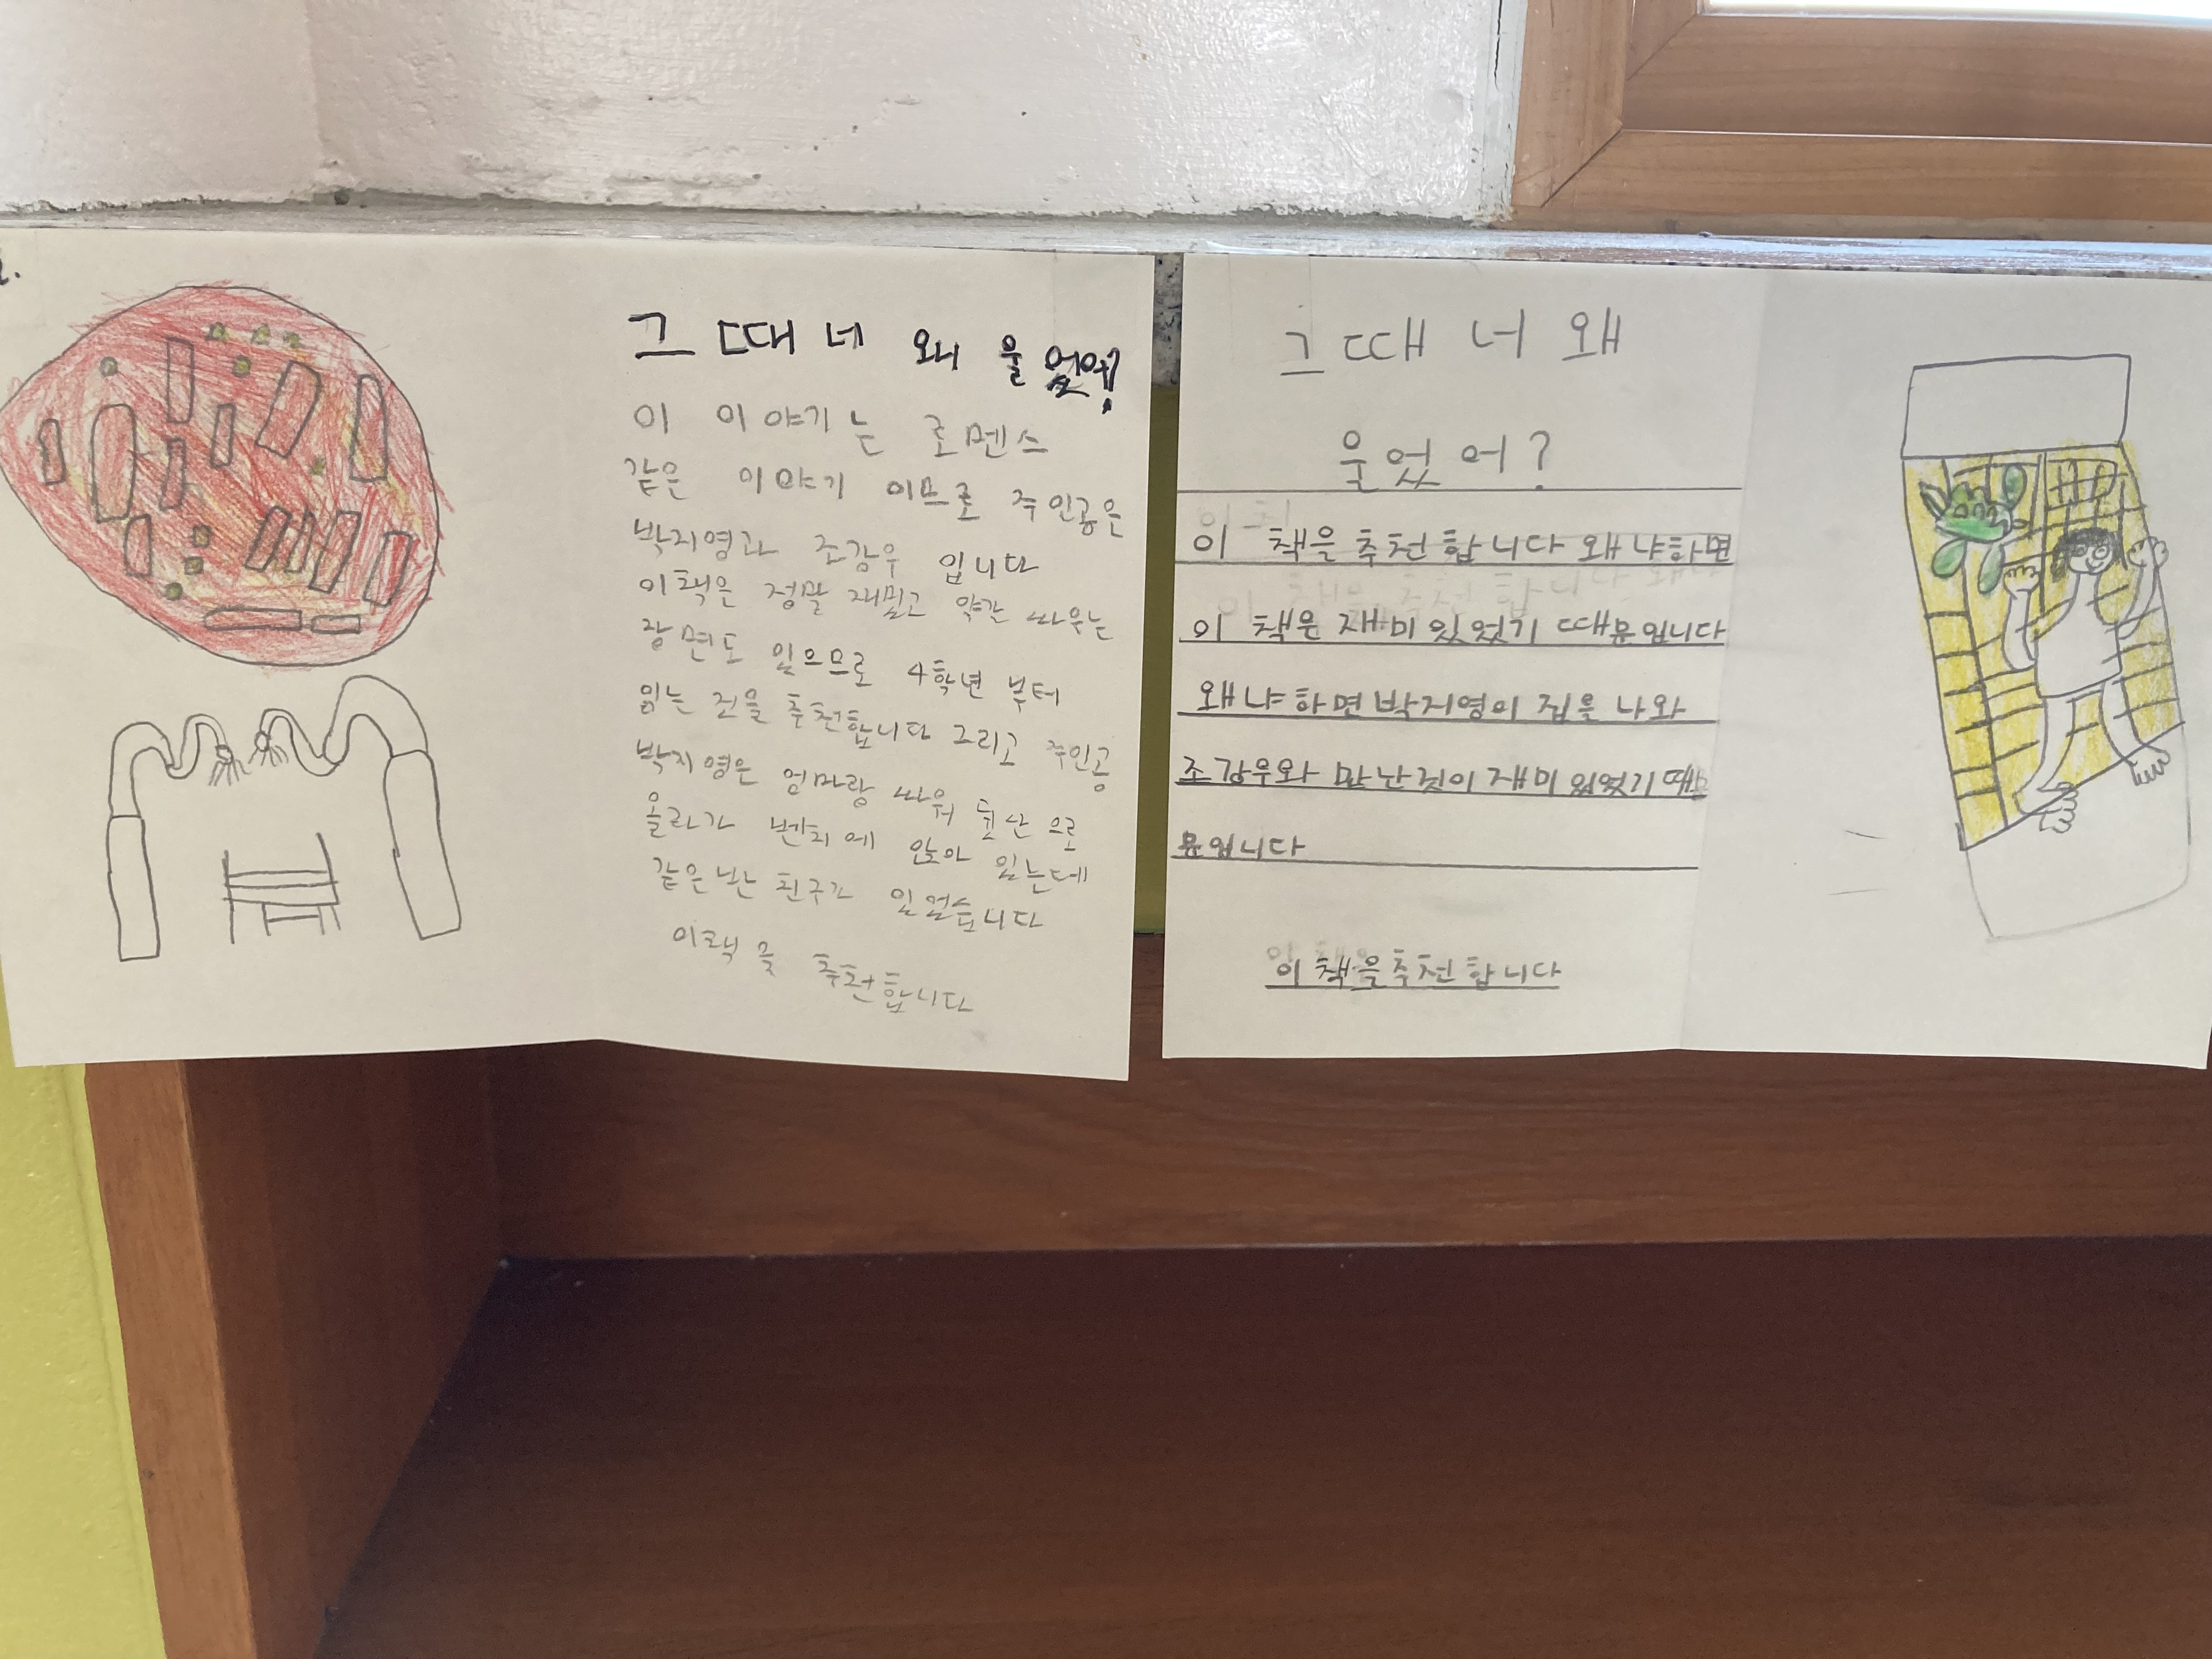 그 때 네 왜 울었어?
이 이야기는 로멘스
같은 이야기 이므로 주인공은
박지영과 조강우 입니다
이책은 정말 재밌고 약간 싸우는
장면도 있으므로 4학년 부터
읽는 것을 추천합니다 그리고 주인공
박지영은 엄마랑 싸워 뒷산으로
올라가 벤치에 앉아 있는데
같은반 친구가 있었습니다
이책을 추천합니다
그때 너 왜
울었어?
이 책을 추천합니다 왜냐하면
이 책은 재미있었기 때문입니다
왜냐하면 박지영이 집을 나와
조강우와 만난것이 재미있었기 때
문입니다
이 책을 추천합니다